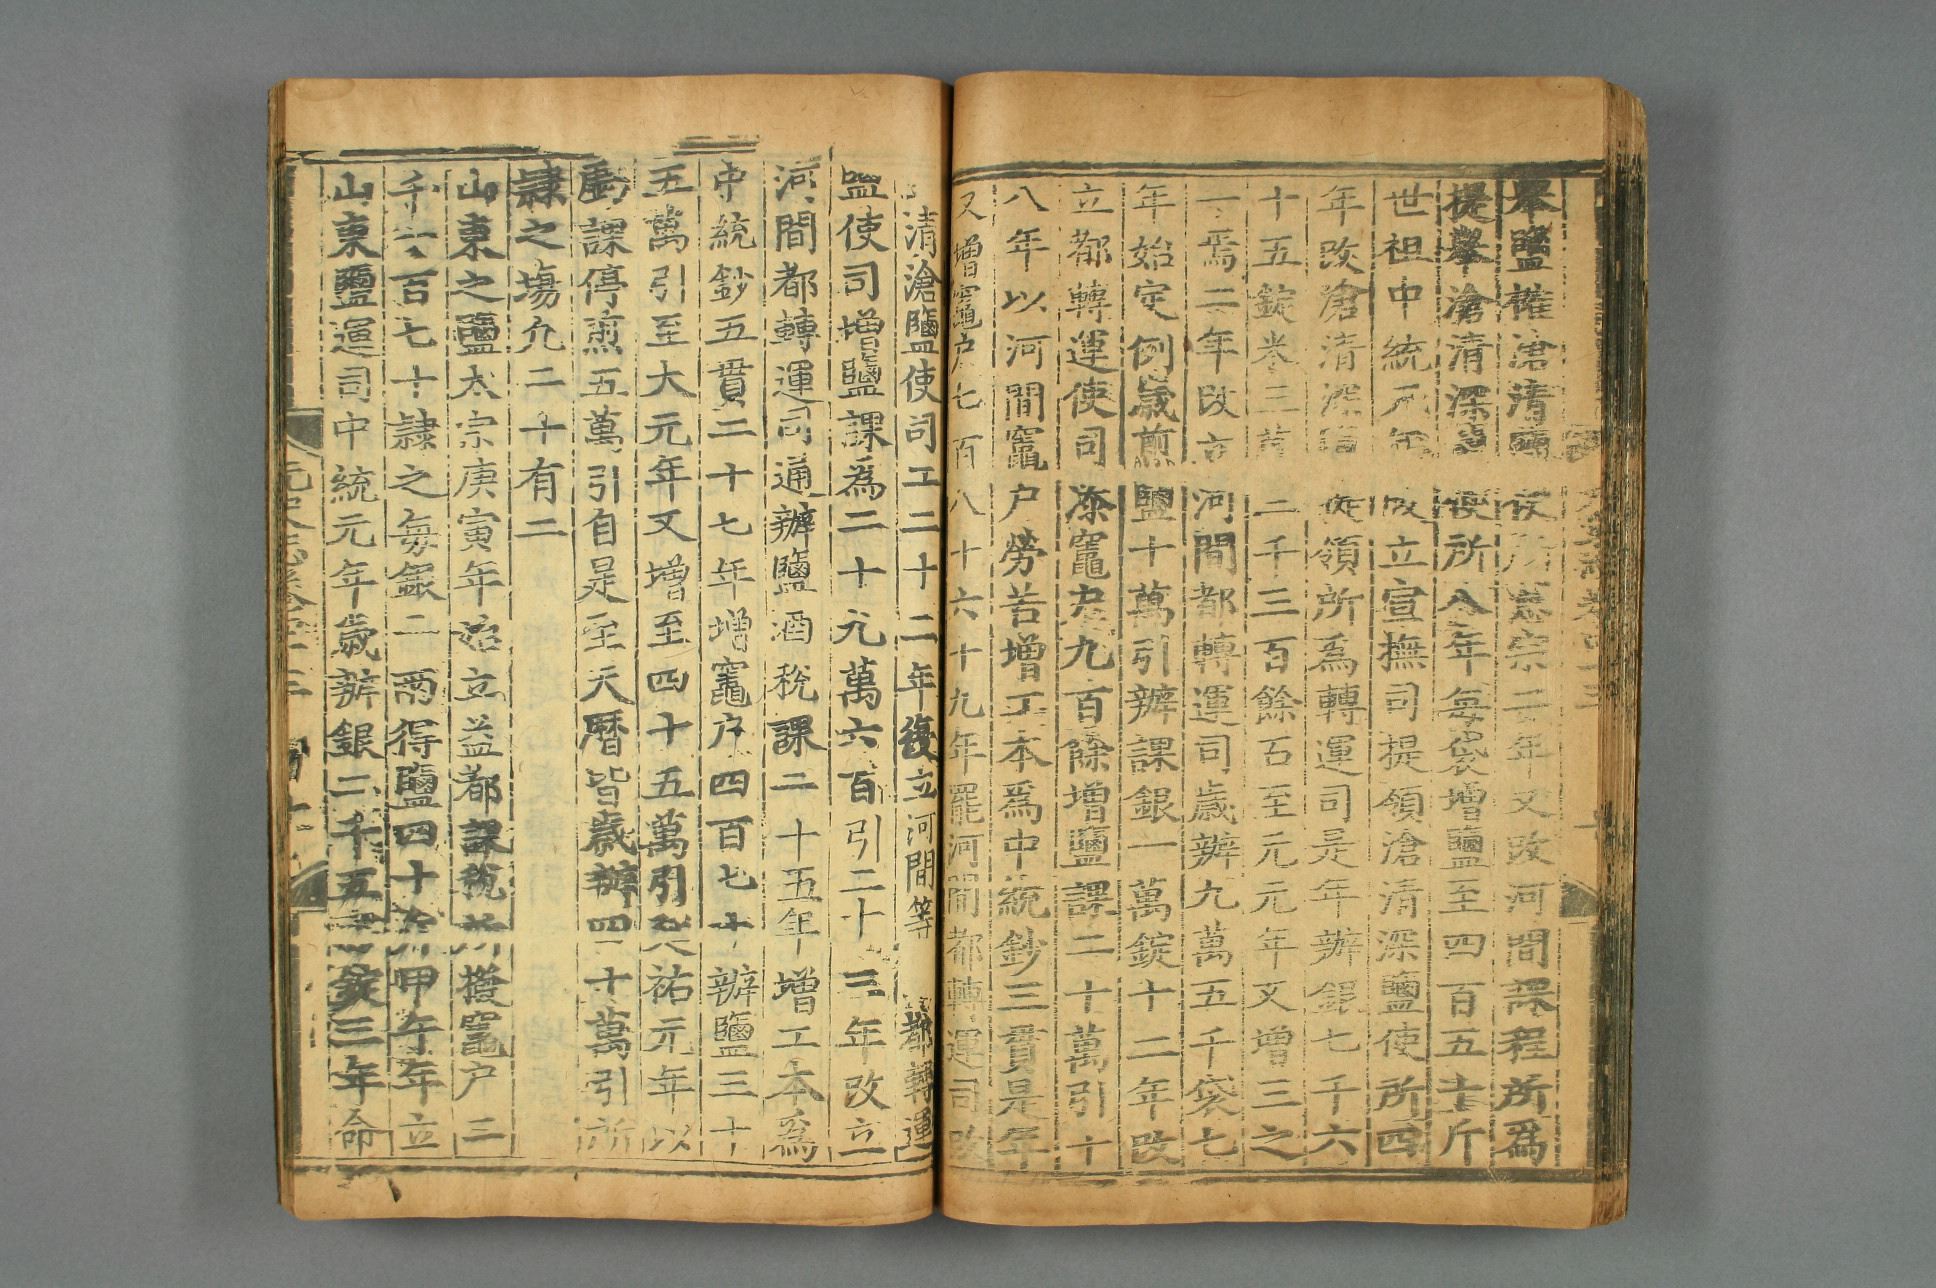 舉鹽榷滄清鹽使所憲宗二年又改河間課程所爲
提舉滄清深鹽使所八年每袋增鹽至四百五十斤
世祖中統元年改立宣撫司提領滄清深鹽使所四
年改滄清深鹽提領所爲轉運司是年辦銀七千六
十五錠米三萬三千三百餘石至元元年又增三之
一焉二年改立河間都轉運司歲辦九萬五千袋七
年始定例歲煎鹽十萬引辦課銀一萬錠十二年改
立都轉運使司添竈户九百餘增鹽課二十萬引十
八年以河間竈户勞苦增工本爲中統鈔三貫是年
又增竈户七百八十六十九年罷河間都轉運司改
清滄鹽使司二二十二年復立河間等 都轉運
鹽使司增鹽課爲二十九萬六百引二十三年改立
河間都轉運司通辦鹽酒稅課二十五年增工本爲
中統鈔五貫二十七年增竈户四百七十辦鹽三十
五萬引至大元年又增至四十五萬引延祐元年以
虧課停煎五萬引自是至天曆皆歲辦四十萬引所
隸之塲凡二十有二
山東之鹽太宗庚寅年始立益都課稅所撥竈户二
千一百七十隸之每銀一兩得鹽四十斤甲午年立
山東鹽運司中統元年歲辦銀二千五百錠三年命
元史志卷四十三